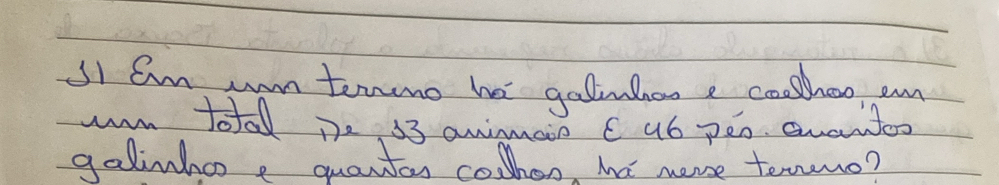 1) Em um terreno há galinhas e coelhos, em
um total De 13 animais E 46 pés. Quantos
galinhas e quantas coelhos, há nesse terreno?